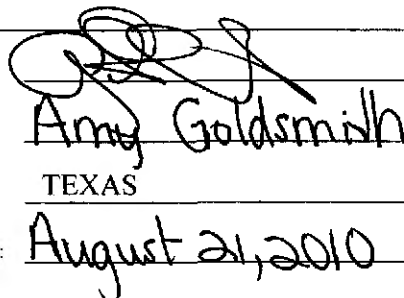 Amy Goldsmith
TEXAS
: August 21, 2010